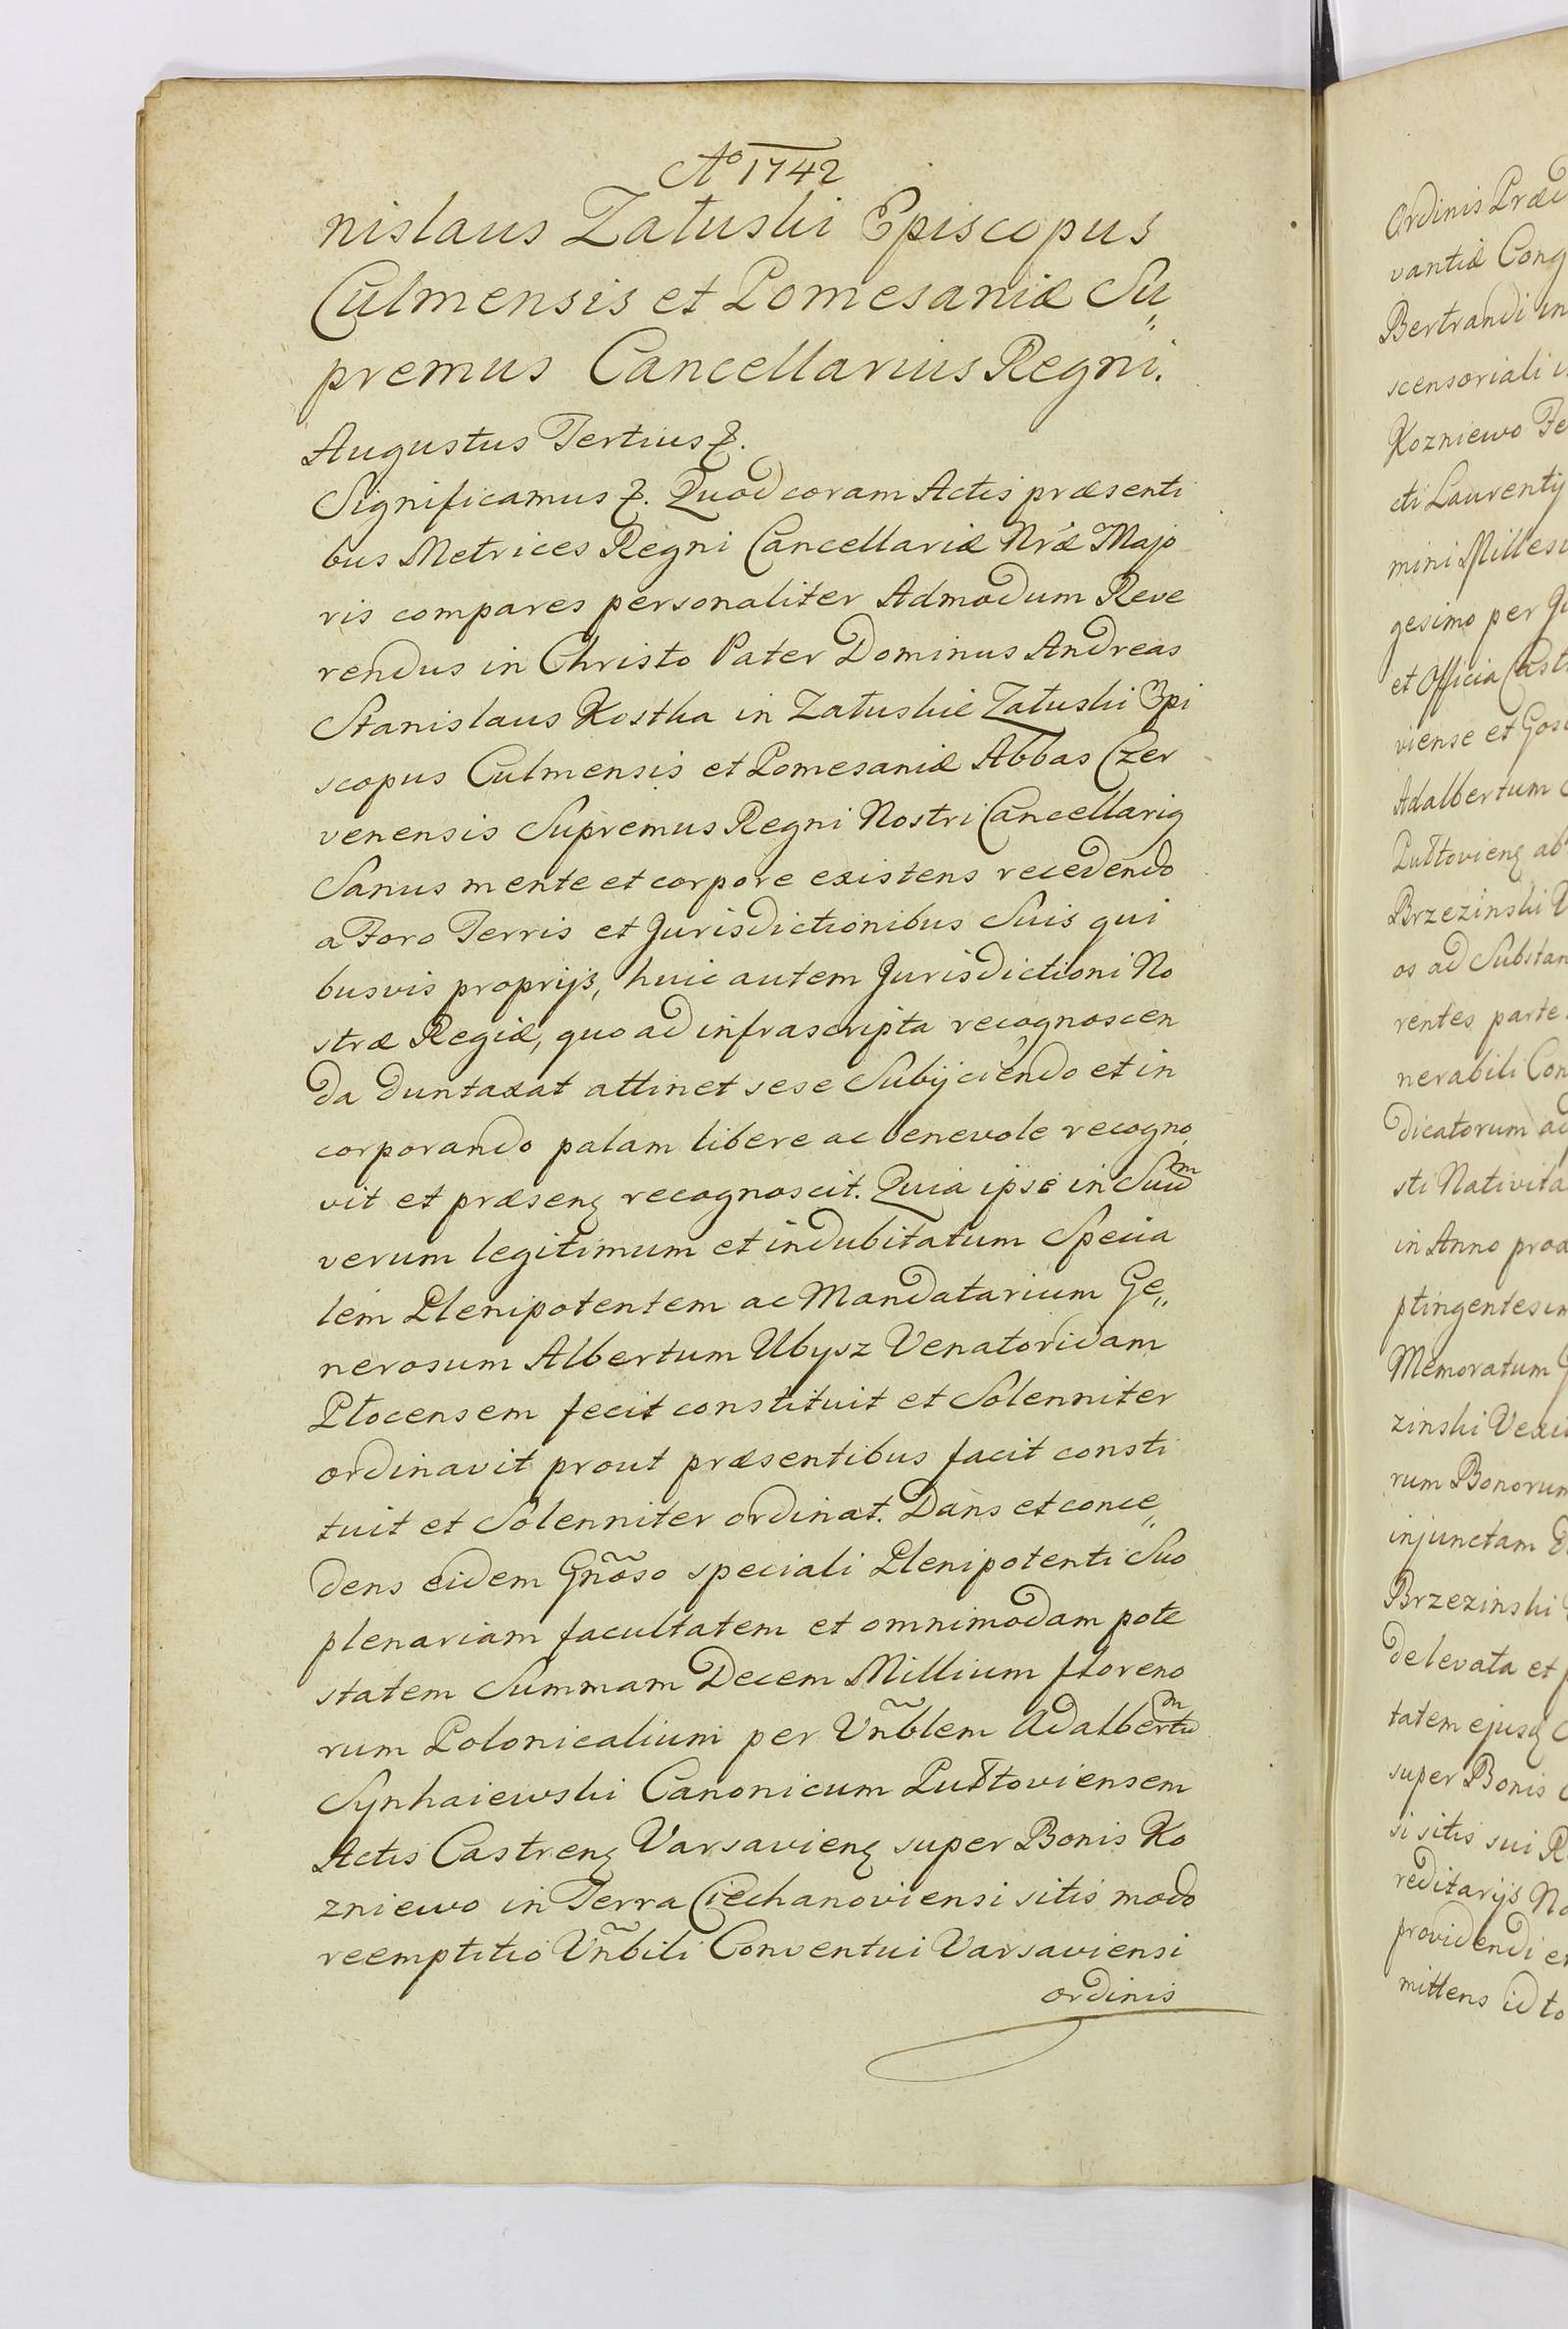 Aº 1742
nislaus Załuski Episcopus
Culmensis et Pomesaniæ Su„
premus Cancellarius Regni.
Augustus Tertius &.
Significamus &. Quod coram Actis præsenti
bus Metrices Regni Cancellariæ Nræ Majo
ris compares personaliter Admodum Reve
rendus in Christo Pater Dominus Andreas
Stanislaus Kostka in Załuskie Załuski Epi
scopus Culmensis et Pomesaniæ Abbas Czer
venensis Supremus Regni Nostri Cancellarig
Sanus mente et corpore existens recedendo
a Foro Terris et Jurisdictionibus Suis qui
busvis proprijs, huic autem Jurisdictioni No
stræ Regiæ, quo ad infrascripta recognoscen
da duntaxat attinet sese Subijciendo et in
corporando palam libere ac benevole recogno
vit et præsenq recognoscit. Quia ipse in Suum
verum legitimum et indubitatum Specia
lem Plenipotentem ac Mandatarium Ge„
nerosum Albertum Ubysz Venatoridam
Płocensem fecit constituit et Solenniter
ordinavit prout præsentibus facit consti
tuit et Solenniter ordinat. Dans et conce„
dens eidem Gñoso speciali Plenipotenti Suo
plenariam facultatem et omnimodam pote
statem Summam Decem Millium floreno
rum Polonicalium per Vñblem Adalbertum
Synhaiewski Canonicum Pułtoviensem
Actis Castrenq Varsavienq super Bonis Ko
zniewo in Terra Ciechanoviensi sitis modo
reemptitio Vñbili Conventui Varsaviensi
ordinis
Ordinis Præd
vantiæ Cong
Bertrandi in
scensoriali
Kozniewo Te
cti Laurentij
mini Millesi
gesimo per
et Officia Cast
viense et Gos
Adalbertum
Pułtovienq ab
Brzezinski
os ad Substan
rentes parte
nerabili Con
dicatorum ad
sti Nativita
in Anno præ
ptingentesim
Memoratum
zinski Vexi
rum Bonorum
injunctam
Brzezinski
delevata et
tatem ejusq
super Bonis
si sitis sui R
reditarijs No
providendi
mittens id to